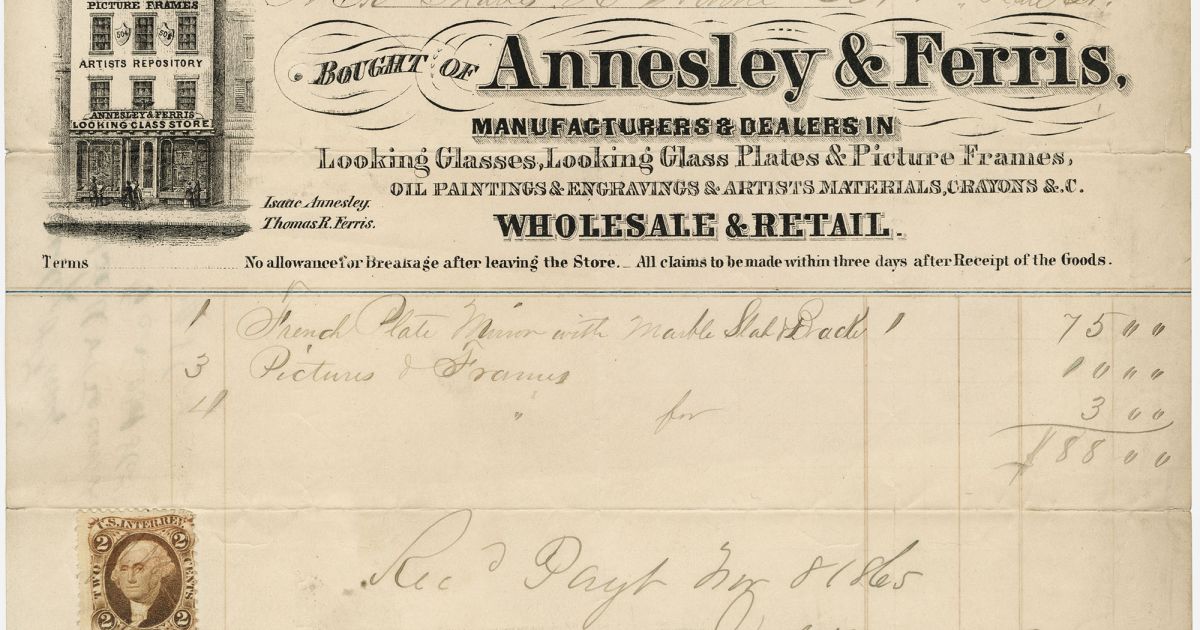 PICTURE FRAMES
504 506
ARTISTS REPOSITORY
ANNESLEY & FERRIS
LOOKING GLASS STORE
BOUGHT OF Annesley & Ferris,
MANUFACTURERS & DEALERS IN
Looking Glasses, Looking Glass Plates & Picture Frames,
OIL PAINTINGS & ENGRAVINGS & ARTISTS MATERIALS, CRAYONS &.C.
Isaac Annesley.
Thomas R. Ferris.
WHOLESALE & RETAIL.
Terms No allowance for Breakage after leaving the Store. _ All claims to be made within three days after Receipt of the Goods.
1 French Plate Mirror with Marble Slab & Brack 1 75 " "
3 Pictures & Frames 10 " "
4 " for 3 " "
$88 " "
U.S. INTER. REV.
2 2
TWO CENTS
2 2
Rec'd Payt Nov 8 1865